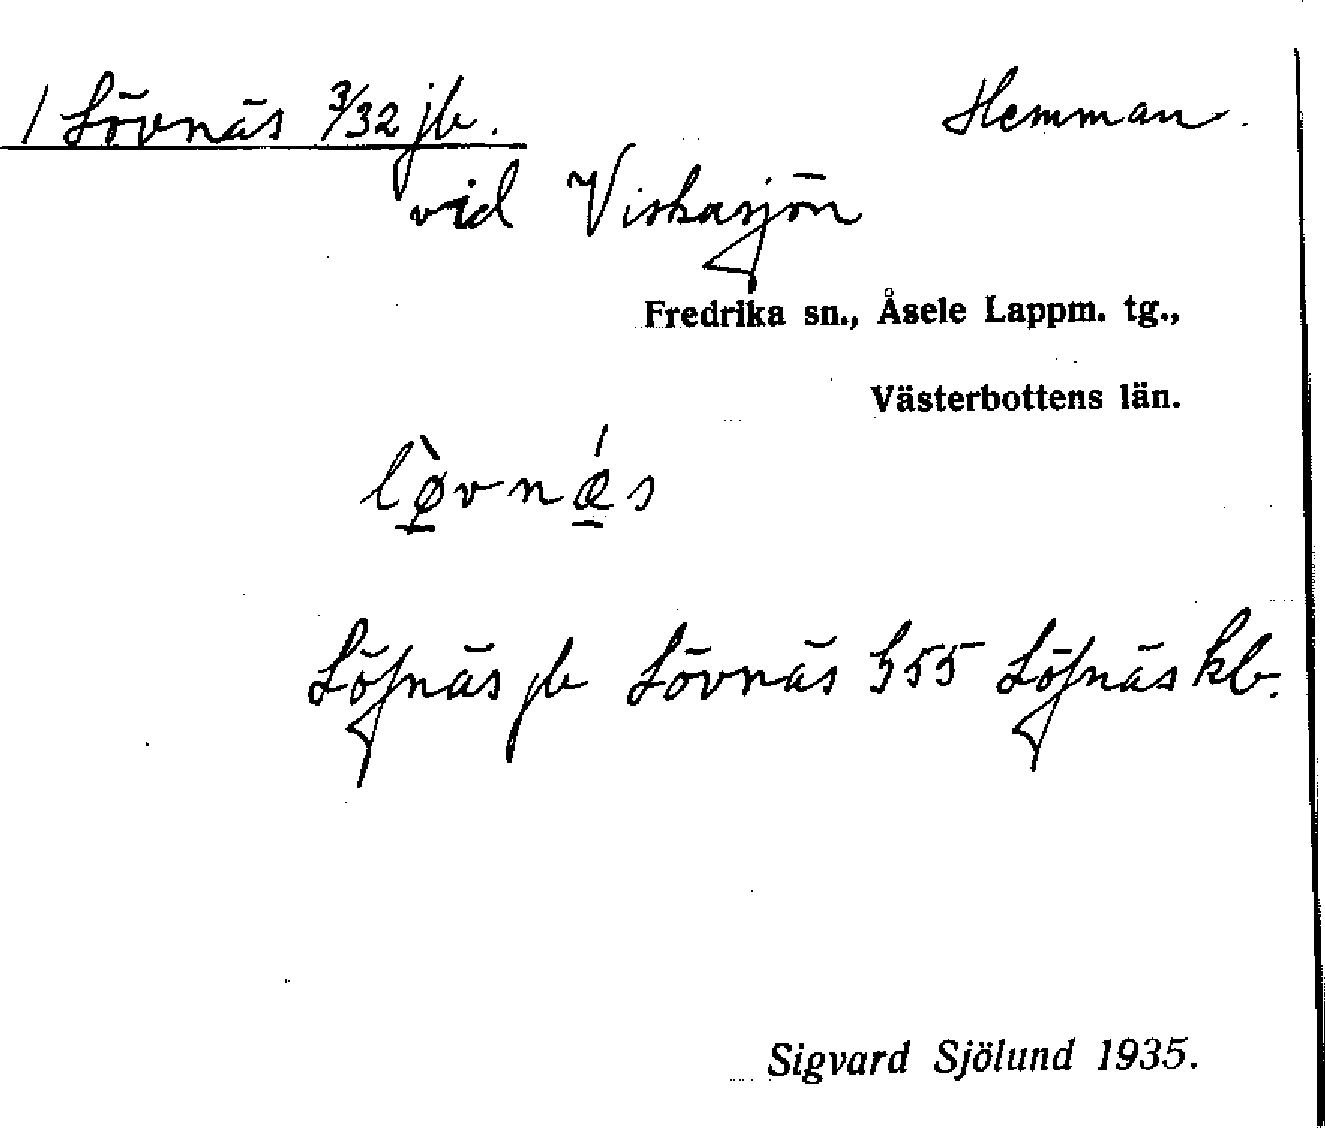 1 Lövnäs 3/32 jb. Hemman.
vid Viskasjön
Fredrika sn., Åsele Lappm. tg.,
Västerbottens län.
lø̲̀vnǽ̲s
Löfnäs jb Lövnäs 55 Löfnäs kb.
Sigvard Sjölund 1935.